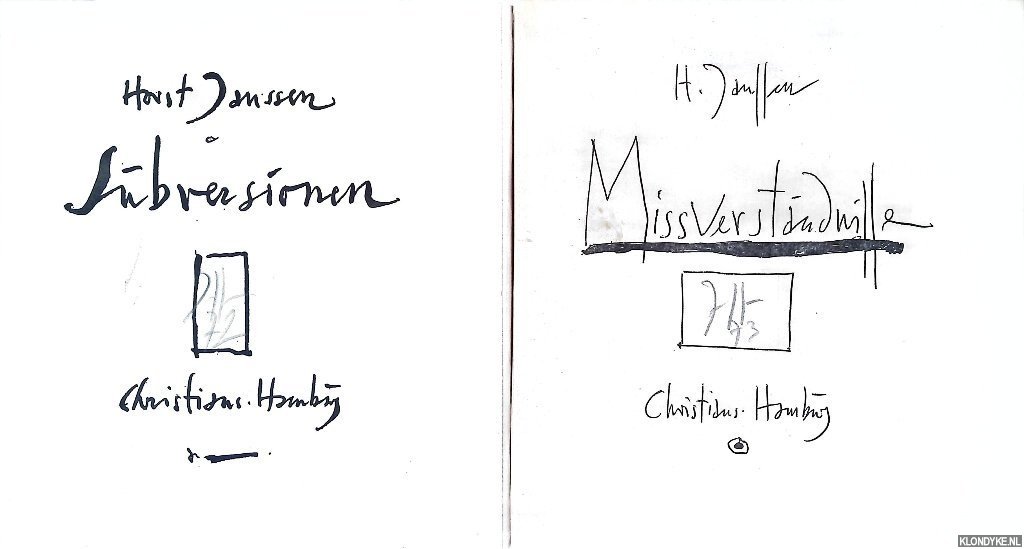 Horst Janssen
Subversionen
Christians. Hamburg
H. Janssen
Missverständnisse
Christians. Hamburg
KLONDYKE.NL